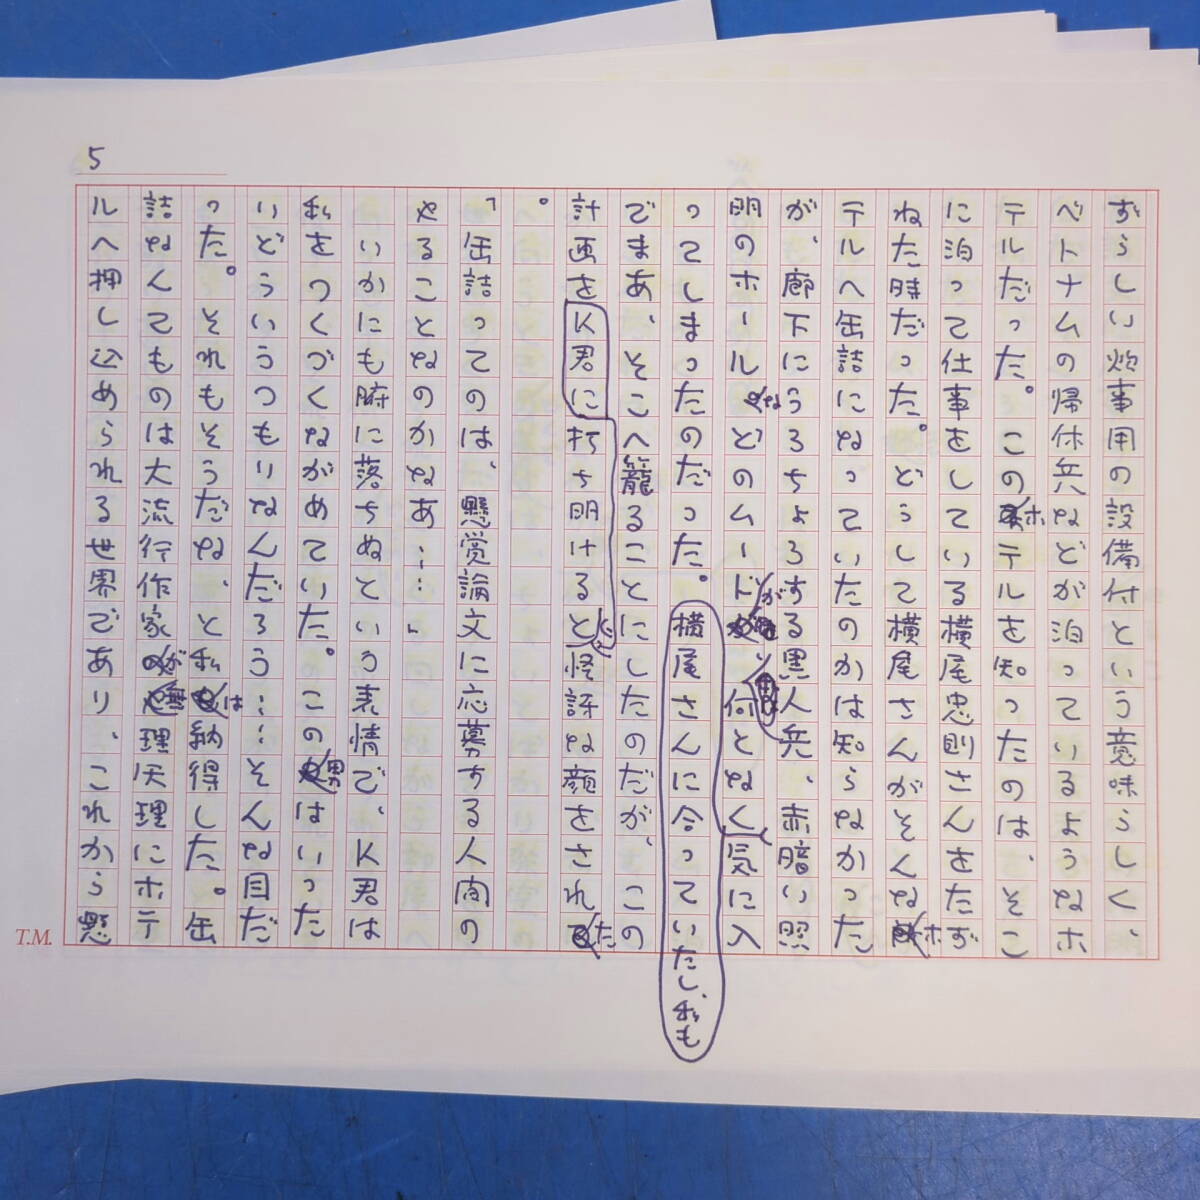 5
ずらしい炊事用の設備付という意味らしく、
ベトナムの帰休兵などが泊っているようなホ
テルだった。このホテルを知ったのは、そこ
に泊って仕事をしている横尾忠則さんをたず
ねた時だった。どうして横尾さんがそんなホ
テルへ缶詰になっていたのかは知らなかった
が、廊下にうろちょろする黒人兵、赤暗い照
明のホールなどのムードが何となく気に入
ってしまったのだった。横尾さんに合っていたし、私も
でまあ、そこへ籠ることにしたのだが、この
計画をK君に打ち明けると怪訝な顔をされた
。
「缶詰ってのは、懸賞論文に応募する人間の
やることなのかなあ……」
いかにも腑に落ちぬという表情で、K君は
私をつくづくながめていた。この男はいった
いどういうつもりなんだろう……そんな目だ
った。それもそうだな、と私は納得した。缶
詰なんてものは大流行作家が無理矢理にホテ
ルへ押し込められる世界であり、これから懸
T.M.